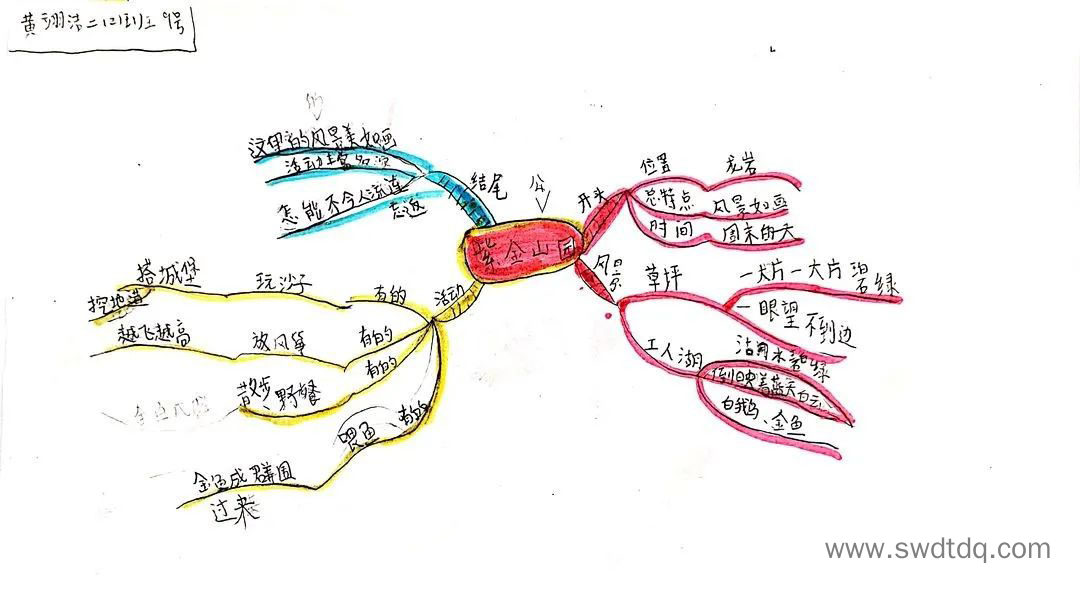 黄翊洁二(2)班 9号
紫金山园
公
开头
位置
龙岩
总特点
风景如画
时间
周末的一天
风景
草坪
一大片一大片
碧绿
一眼望不到边
工人湖
湖水碧绿
倒映着蓝天白云
白鹅、金鱼
活动
有的
玩沙子
搭城堡
挖地道
有的
放风筝
越飞越高
有的
野餐
散步
有的
喂鱼
金鱼成群围
过来
结尾
这里的风景美如画
活动丰富多彩
怎能不令人流连
忘返
www.swdtdq.com